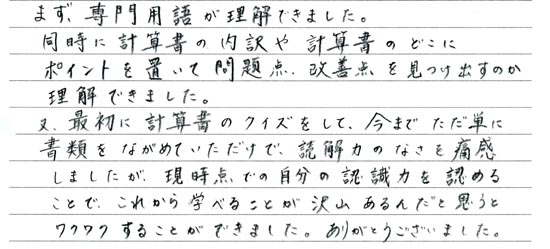 まず、専門用語が理解できました。
同時に計算書の内訳や計算書のどこに
ポイントを置いて問題点、改善点を見つけ出すのか
理解できました。
又、最初に計算書のクイズをして、今までただ単に
書類をながめていただけで、読解力のなさを痛感
しましたが、現時点での自分の認識力を認める
ことで、これから学べることが沢山あるんだと思うと
ワクワクすることができました。ありがとうございました。